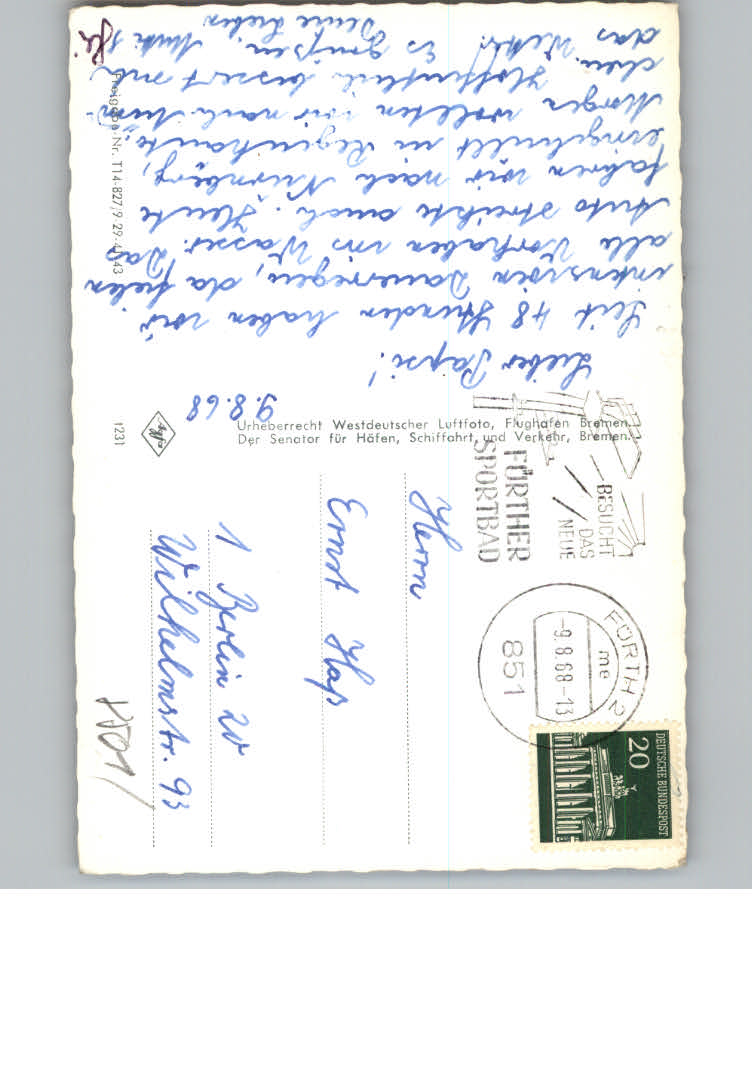 9.8.68
Lieber Papsi!
Seit 48 Stunden haben wir
intensiven Dauerregen, da fielen
alle Vorhaben ins Wasser. Das
Auto streikte auch. Heute
fahren wir nach Nürnberg,
eingehüllt in Regenhaute.
Morgen wollten wir nach Mün-
chen. Hoffentlich bessert sich
das Wetter. Es grüßen
Deine Lieben
Freigabe-Nr. T14-827/9-29-4143
Urheberrecht Westdeutscher Luftfoto, Flughafen Bremen.
Der Senator für Häfen, Schiffahrt und Verkehr, Bremen.
Agfa
1231
BESUCHT
DAS
NEUE
FÜRTHER
SPORTBAD
FÜRTH 2
me
-9.8.68-13
851
DEUTSCHE BUNDESPOST
20
Herrn
Ernst Haß
1 Berlin 20
Wilhelmstr. 93